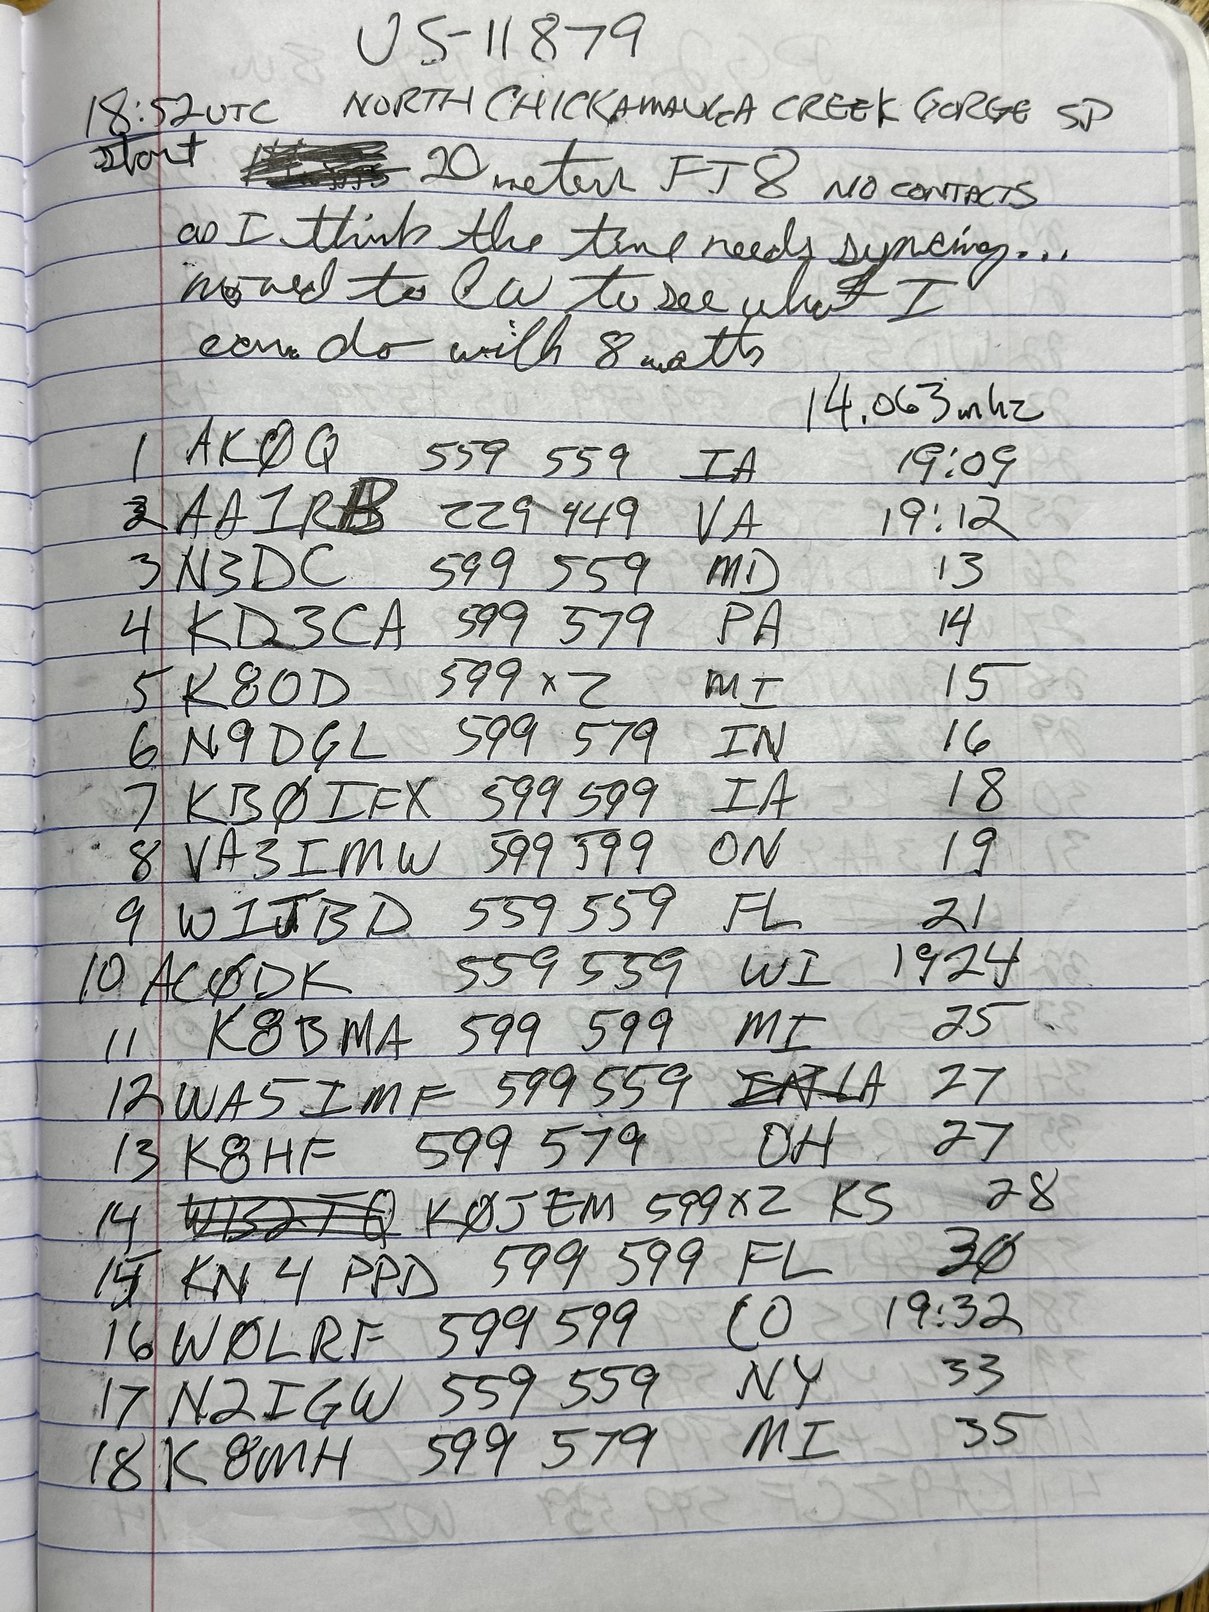 US-11879
18:52 UTC NORTH CHICKAMAUGA CREEK GORGE SP
start 20 meters FT8 NO CONTACTS
as I think the time needs syncing...
moved to CW to see what I
can do with 8 watts
14.063 mhz
1 AKØQ 559 559 IA 19:09
2 AA1RB 229 449 VA 19:12
3 N3DC 599 559 MD 13
4 KD3CA 599 579 PA 14
5 K8OD 599 x 2 MI 15
6 N9DGL 599 579 IN 16
7 KBØIFX 599 599 IA 18
8 VA3IMW 599 599 ON 19
9 W1JBD 559 559 FL 21
10 ACØDK 559 559 WI 1924
11 K8BMA 599 599 MI 25
12 WA5IMF 599 559 LA 27
13 K8HF 599 579 OH 27
14 WB2JQ KØJEM 599 x 2 KS 28
15 KN4PPD 599 599 FL 30
16 WØLRF 599 599 CO 19:32
17 N2IGW 559 559 NY 33
18 K8MH 599 579 MI 35